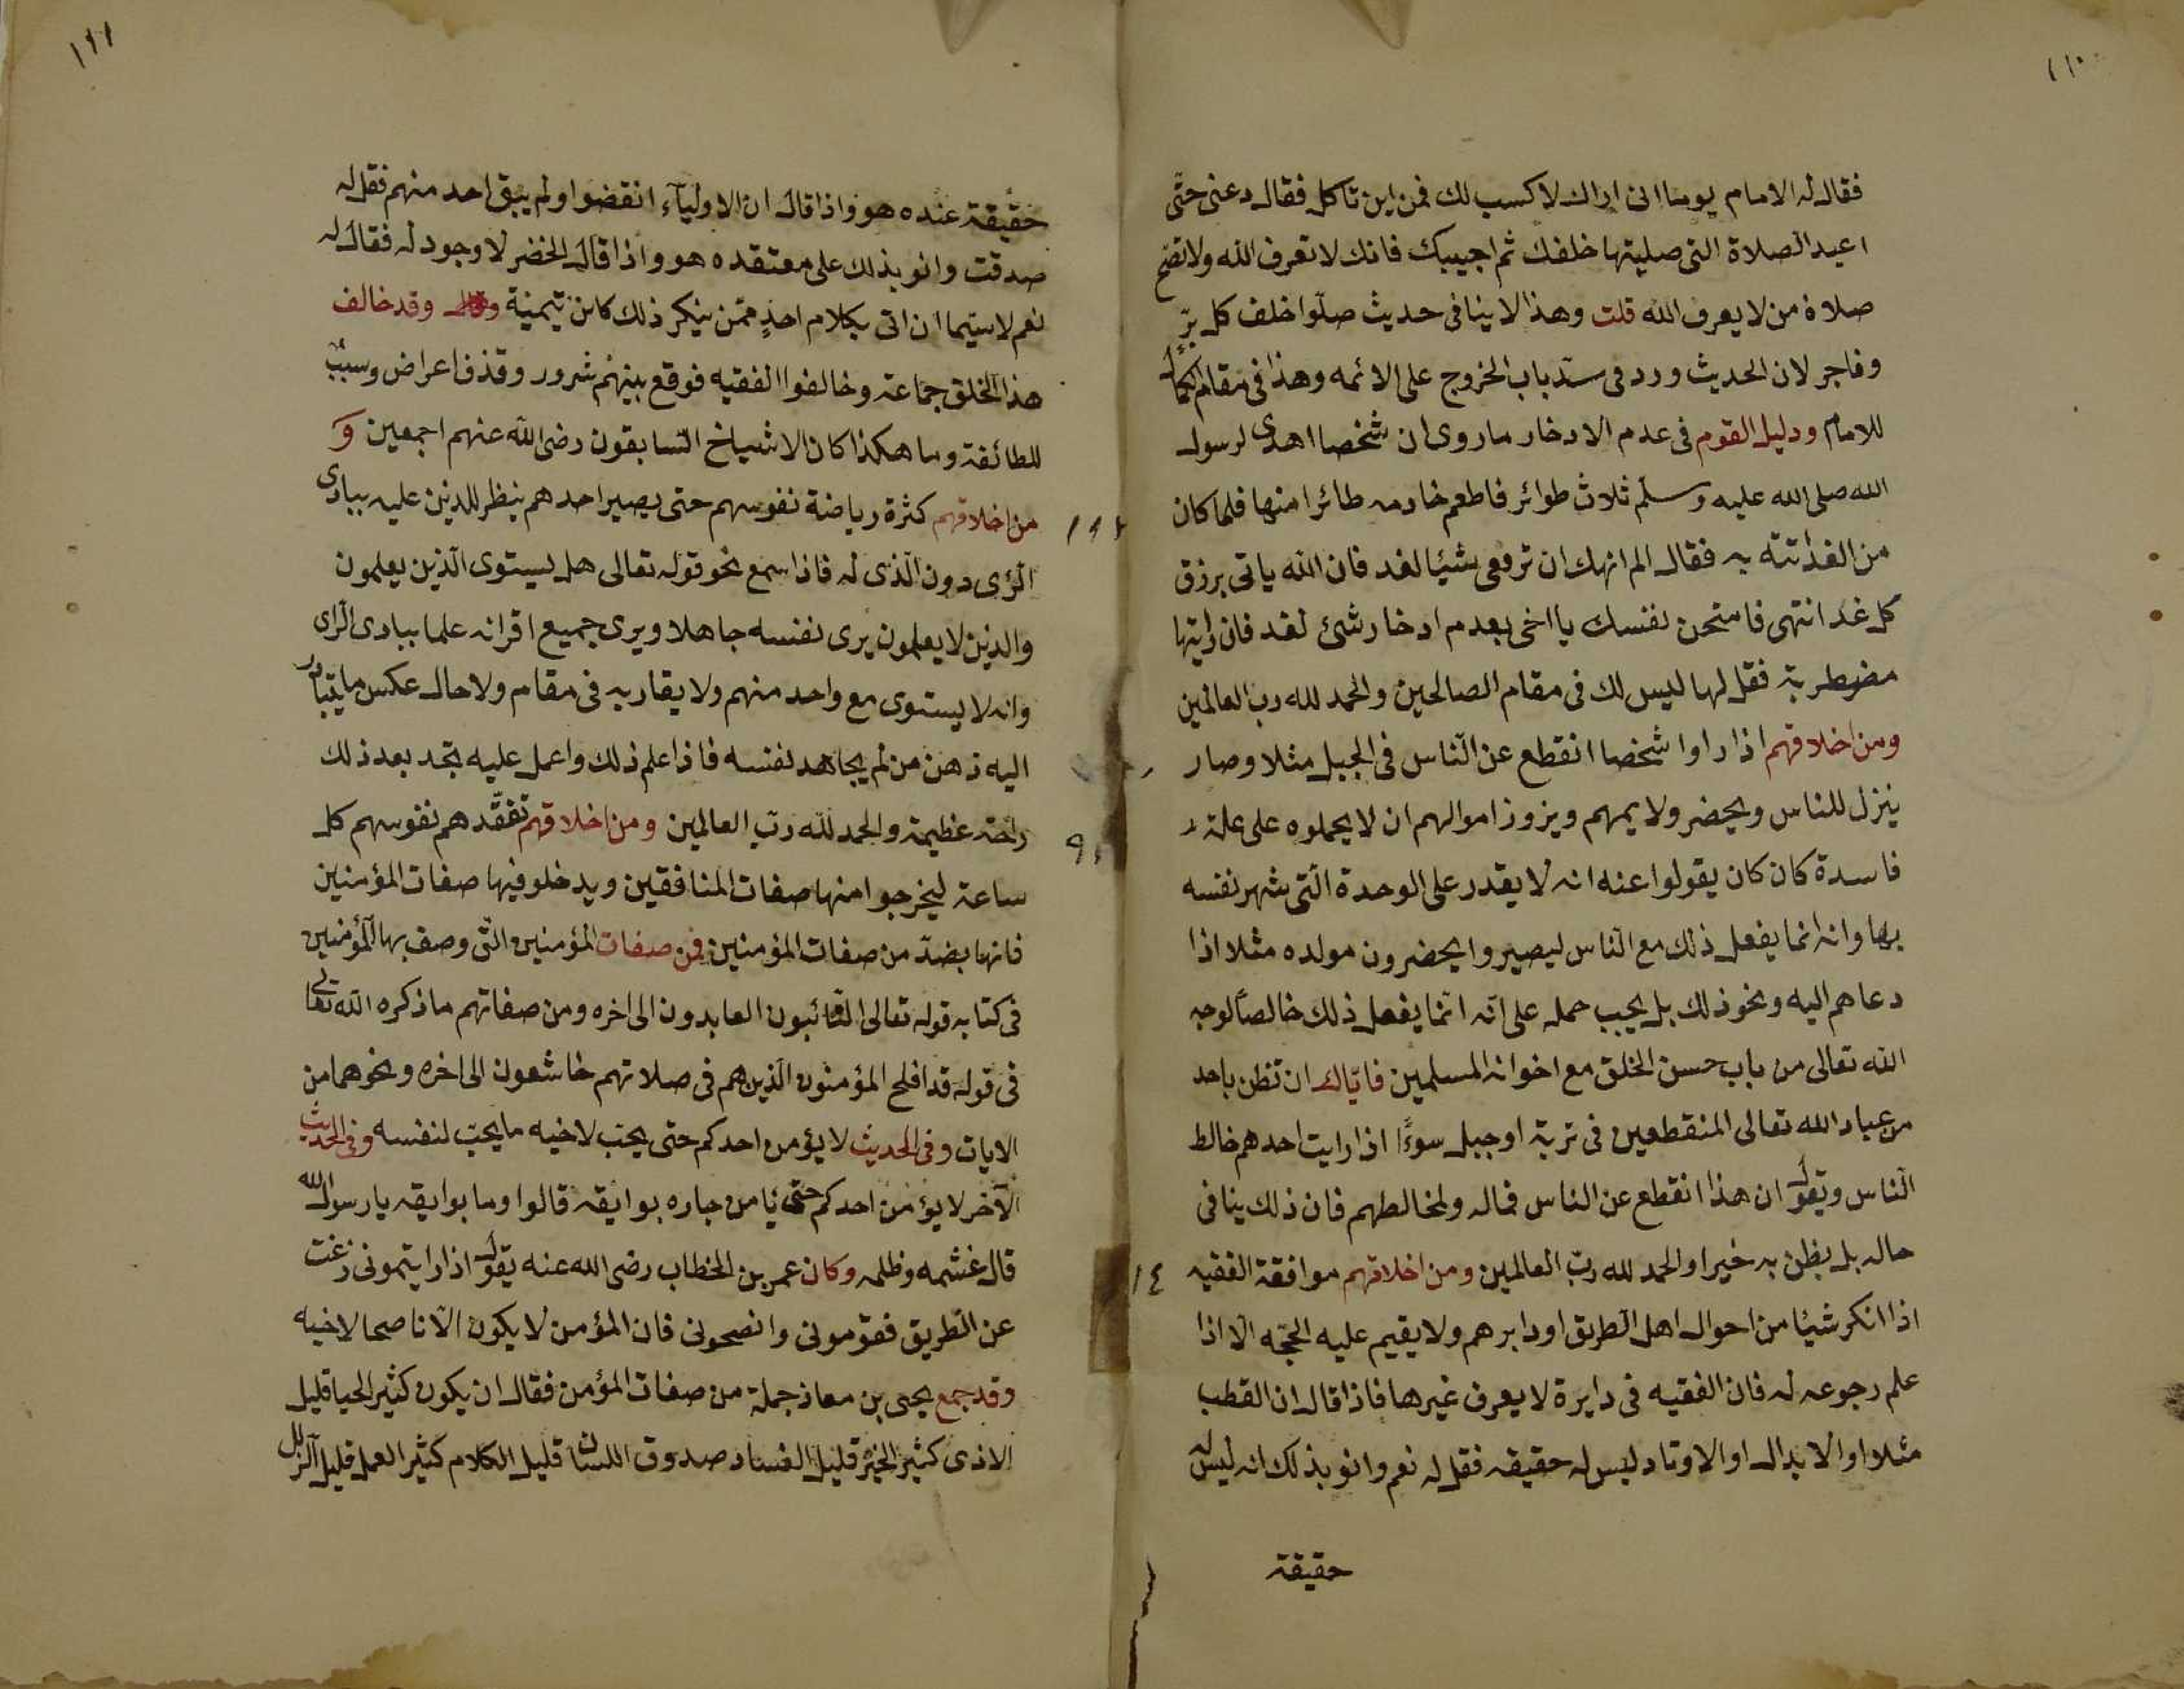 ١١٠
فقال له الامام يوما انى اراك لا كسب لك فمن اين تاكل فقال دعنى حتّى
اعيد الصلاة التى صليتها خلفك ثم اجيبك فانك لا تعرف الله ولا تصح
صلاة من لا يعرف الله قلت وهذا لا ينافى حديث صلّوا خلف كل برّ
وفاجر لان الحديث ورد فى سدّ باب الخروج على الائمه وهذا فى مقام الكمال
للامام ودليل القوم فى عدم الادخار ما روى ان شخصا اهدى لرسول
الله صلى الله عليه وسلّم ثلاث طوائر فاطعم خادمه طائرا منها فلما كان
من الغد اتته به فقال الم انهك ان ترفعى شيئا لغد فان الله ياتى برزق
كل غد انتهى فامتحن نفسك يا اخى بعدم ادخار شئ لغد فان رايتها
مضطربة فقل لها ليس لك فى مقام الصالحين والحمد لله رب العالمين
ومن اخلاقهم اذا راوا شخصا انقطع عن النّاس فى الجبل مثلا وصار
ينزل للناس ويحضر ولايمهم ويزور اموالهم ان لا يحملوه على علة
فاسدة كان كان يقولوا عنه انه لا يقدر على الوحدة الّتى شهر نفسه
بها وانه انما يفعل ذلك مع النّاس ليصيروا يحضرون مولده مثلا اذا
دعاهم اليه ونحو ذلك بل يجب حمله على انّه انّما يفعل ذلك خالصًا لوجه
الله تعالى من باب حسن الخلق مع اخوانه المسلمين فايّاك ان تظن باحد
من عباد الله تعالى المنقطعين فى تربة او جبل سوءًا اذا رايت احدهم خالط
النّاس وتقول ان هذا انقطع عن الناس فماله ولمخالطهم فان ذلك ينافى
حاله بل يظن به خيرا والحمد لله ربّ العالمين ومن اخلاقهم موافقة الفقيه
١٤
اذا انكر شيئا من احوال اهل الطريق او دابرهم ولا يقيم عليه الحجّه الّا اذا
علم رجوعه له فان الفقيه فى دايرة لا يعرف غيرها فاذا قال ان القطب
مثلا او الابدال او الاوتاد ليس له حقيقه فقل له نعم وانو بذلك انه ليس له
حقيقة
١١١
حقيقة عنده هو واذا قال ان الاوليآء انقضوا ولم يبق احد منهم فقل له
صدقت وانو بذلك على معتقده هو واذا قال الخضر لا وجود له فقال له
نعم لاسيّما ان اتى بكلام احدٍ ممّن ينكر ذلك كابن تيمية وقد خالف
هذا الخلق جماعة وخالفوا الفقيه فوقع بينهم شرور وقذف اعراض وسبّ
للطائفة وما هكذا كان الاشياخ السّابقون رضى الله عنهم اجمعين و
من اخلاقهم كثرة رياضة نفوسهم حتى يصير احدهم ينظر للدين عليه ببادى
الرّى دون الّذى له فاذا سمع نحو قوله تعالى هل يستوى الّذين يعلمون
والذين لا يعلمون يرى نفسه جاهلا ويرى جميع اقرانه علما ببادى الراى
وانه لا يستوى مع واحد منهم ولا يقاربه فى مقام ولا حال عكس ما يتبادر
اليه ذهن من لم يجاهد نفسه فاذا علم ذلك واعمل عليه تجد بعد ذلك
راحة عظيمة والحمد لله ربّ العالمين ومن اخلاقهم تفقّدهم نفوسهم كل
٩
ساعة ليخرجوا منها صفات المنافقين ويدخلو فيها صفات المؤمنين
فانها بضدّ من صفات المؤمنين فمن صفات المؤمنين التّى وصف بها المؤمنين
فى كتابه قوله تعالى التّائبون العابدون الى اخره ومن صفاتهم ما ذكره الله تعالى
فى قوله قد افلح المؤمنون الّذين هم فى صلاتهم خاشعون الى اخره ونحوهما من
الايات وفى الحديث لا يؤمن احدكم حتى يحبّ لاخيه ما يحبّ لنفسه وفى الحديث
الآخر لا يؤمن احدكم حتى يامن جاره بوايقه قالوا وما بوايقه يا رسول الله
قال غشمه وظلمه وكان عمر بن الخطاب رضى الله عنه يقول اذا رايتمونى زغت
عن الطّريق فقوّمونى وانصحونى فان المؤمن لا يكون الّا ناصحا لاخيه
وقد جمع يحيى بن معاذ جملة من صفات المؤمن فقال ان يكون كثير الحيا قليل
الاذى كثير الخير قليل الفساد صدوق اللسان قليل الكلام كثير العمل قليل الزلل